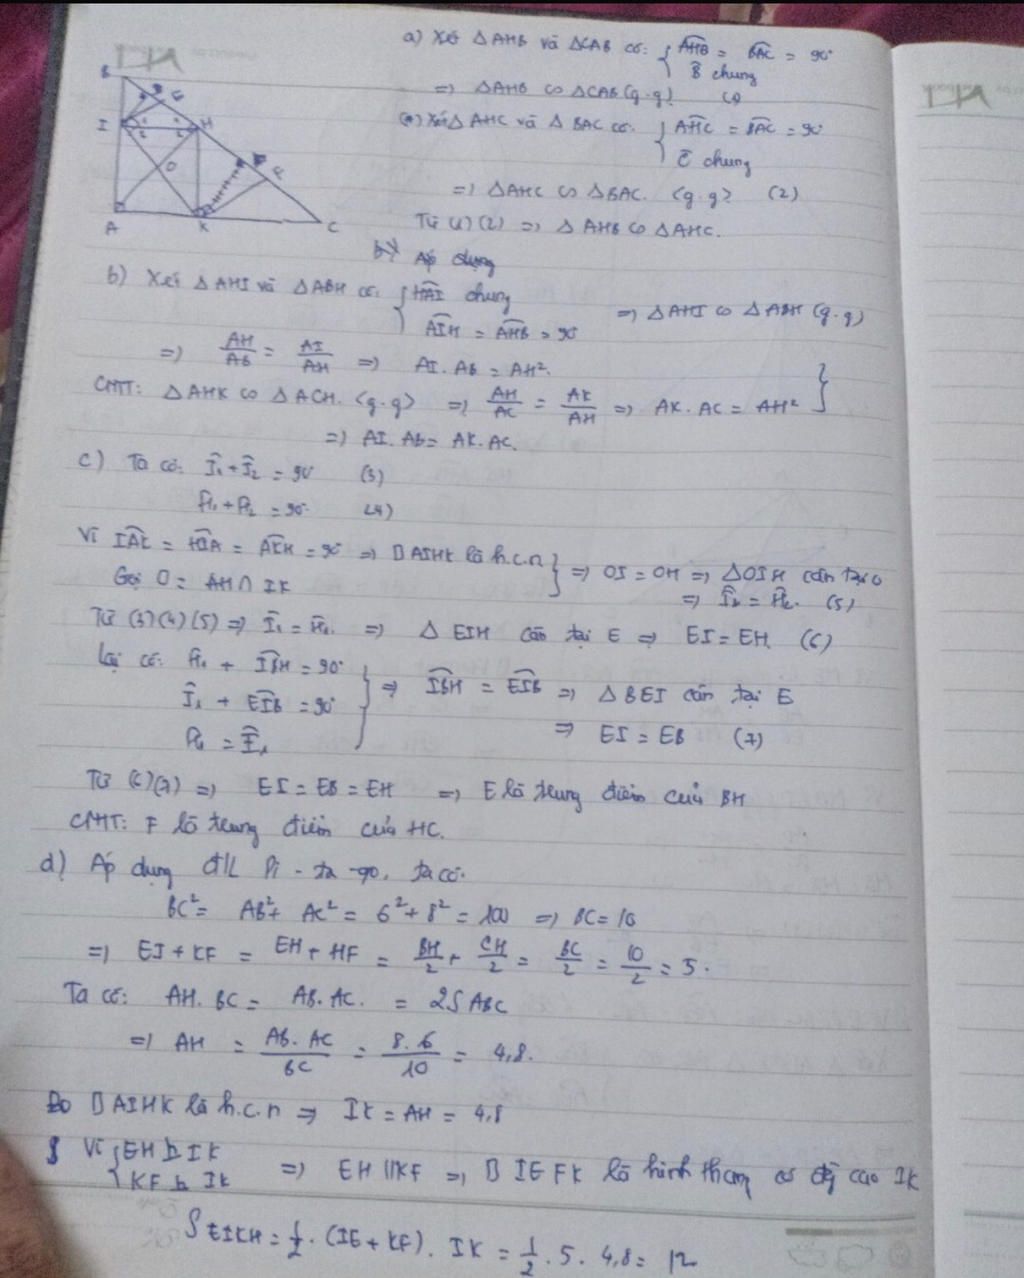 a) Xét ΔAHB và ΔCAB có: { ∠AHB = ∠BAC = 90°
B̂ chung
=> ΔAHB ∽ ΔCAB (g.g) (1)
(*) Xét ΔAHC và ΔBAC có: { ∠AHC = ∠BAC = 90°
Ĉ chung
=> ΔAHC ∽ ΔBAC. (g.g) (2)
Từ (1)(2) => ΔAHB ∽ ΔAHC.
B
E
I
H
O
F
A
K
C
b) Áp dụng
b) Xét ΔAHI và ΔABH có: { ∠HAI chung
∠AIH = ∠AHB = 90
=> ΔAHI ∽ ΔABH (g.g)
=> AH/AB = AI/AH => AI. AB = AH².
CMTT: ΔAHK ∽ ΔACH. (g.g) => AH/AC = AK/AH => AK. AC = AH² }
=> AI. AB = AK. AC.
c) Ta có: Î₁ + Î₂ = 90 (3)
Ĥ₁ + Ĥ₂ = 90° (4)
Vì ∠IAK = ∠HIA = ∠AKH = 90° => □ AIHK là h.c.n
Gọi O = AH ∩ IK } => OI = OH => ΔOIH cân tại O
=> Î₂ = Ĥ₂. (5)
Từ (3)(4)(5) => Î₁ = Ĥ₁. => Δ EIH cân tại E => EI = EH. (6)
Lại có: Ĥ₁ + ∠IBH = 90°
Î₁ + ∠EIB = 90° } => ∠IBH = ∠EIB => ΔBEI cân tại E
Ĥ₁ = Î₁ => EI = EB (7)
Từ (6)(7) => EI = EB = EH => E là trung điểm của BH
CMTT: F là trung điểm của HC.
d) Áp dụng đ/L Pi - ta - go, ta có:
BC² = AB² + AC² = 6² + 8² = 100 => BC = 10
=> EI + KF = EH + HF = BH/2 + CH/2 = BC/2 = 10/2 = 5.
Ta có: AH. BC = AB. AC. = 2S ABC
=> AH = AB. AC/BC = 8.6/10 = 4,8.
Do □ AIHK là h.c.n => IK = AH = 4,8
Vì { EH ⊥ IK
KF ⊥ IK => EH // KF => □ IEFK là hình thang có độ cao IK
S EIKH = 1/2 . (IE + KF). IK = 1/2 . 5. 4,8 = 12